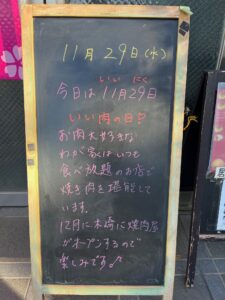 11月29日(水)
いい にく
今日は11月29日
いい肉の日?
お肉大好きな
わが家はいつも
食べ放題のお店で
焼き肉を堪能して
います。
12月に木崎に焼肉屋
がオープンするので
楽しみです♪